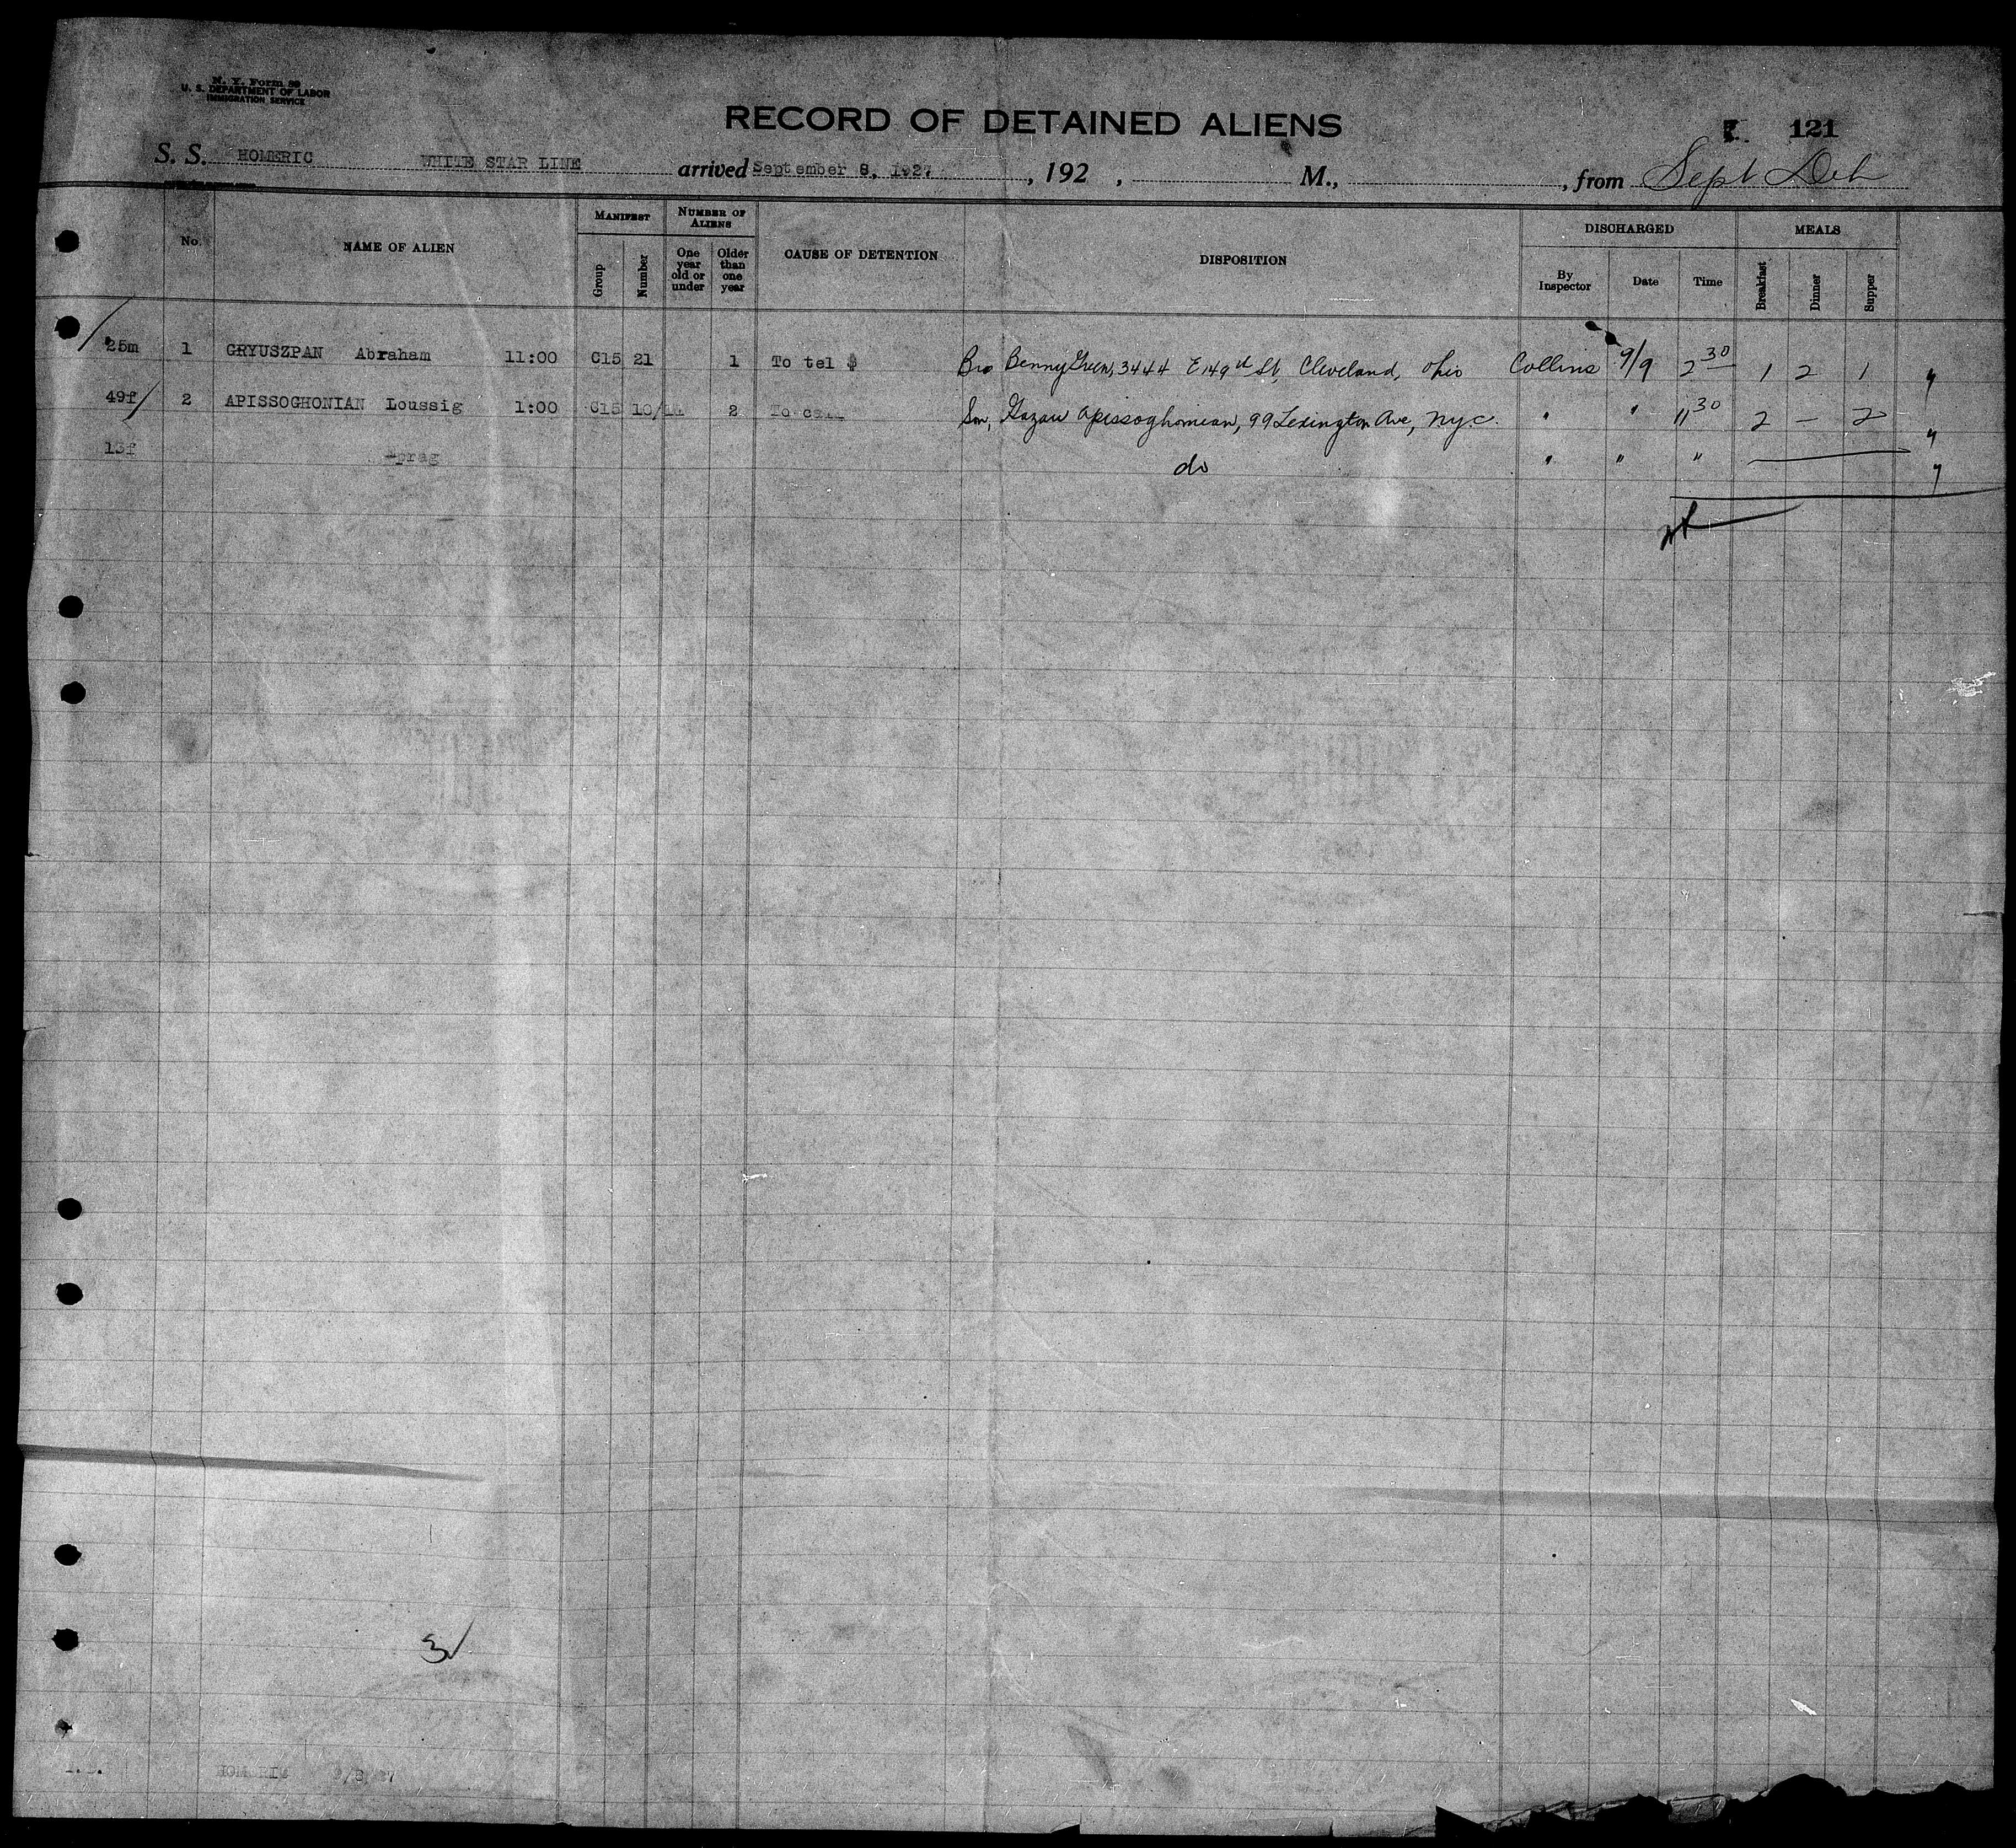 N. Y. Form 89
U. S. DEPARTMENT OF LABOR
IMMIGRATION SERVICE
RECORD OF DETAINED ALIENS
121
S. S. HOMERIC WHITE STAR LINE arrived September 8, 1927 , 192 , M., , from Sept Det
No. NAME OF ALIEN MANIFEST Group Number NUMBER OF ALIENS One year old or under Older than one year CAUSE OF DETENTION DISPOSITION DISCHARGED By Inspector Date Time MEALS Breakfast Dinner Supper
25m 1 GRYUSZPAN Abraham 11:00 C15 21 1 To tel $ Bro Benny Green, 3444 E 149th St, Cleveland, Ohio Collins 9/9 2 30 1 2 1
49f 2 APISSOGHONIAN Loussig 1:00 C15 10/11 2 To call Son, Apissoghomian, 99 Lexington Ave, N.Y.C. " " 11 30 2 — 2
13f do " " "
3
HOMERIC 9/8/27